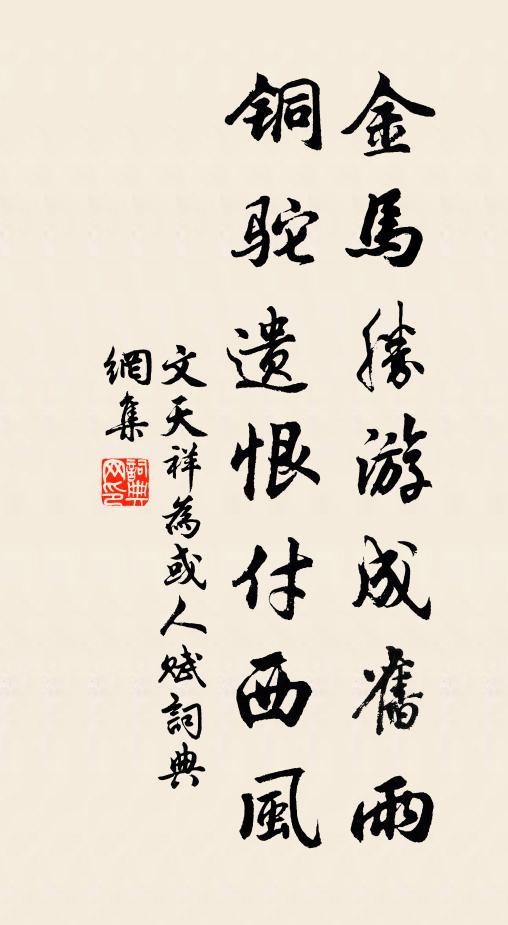 金馬勝游成舊雨
铜驼遗恨付西風
文天祥為或人赋詞典
網集
詞典网印